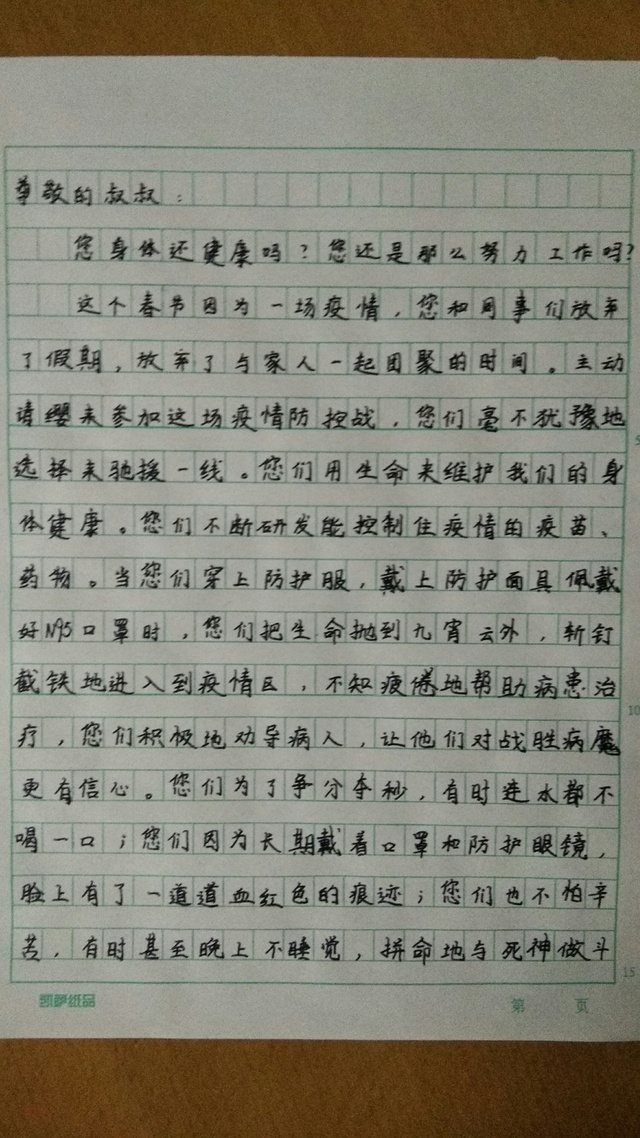 尊敬的叔叔：
您身体还健康吗？您还是那么努力工作吗？
这个春节因为一场疫情，您和同事们放弃
了假期，放弃了与家人一起团聚的时间。主动
请缨来参加这场疫情防控战，您们毫不犹豫地
5
选择来驰援一线。您们用生命来维护我们的身
体健康。您们不断研发能控制住疫情的疫苗、
药物。当您们穿上防护服，戴上防护面具佩戴
好N95口罩时，您们把生命抛到九宵云外，斩钉
截铁地进入到疫情区，不知疲倦地帮助病患治
10
疗，您们积极地劝导病人，让他们对战胜病魔
更有信心。您们为了争分夺秒，有时连水都不
喝一口；您们因为长期戴着口罩和防护眼镜，
脸上有了一道道血红色的痕迹；您们也不怕辛
苦，有时甚至晚上不睡觉，拼命地与死神做斗
15
凯萨纸品
第 页